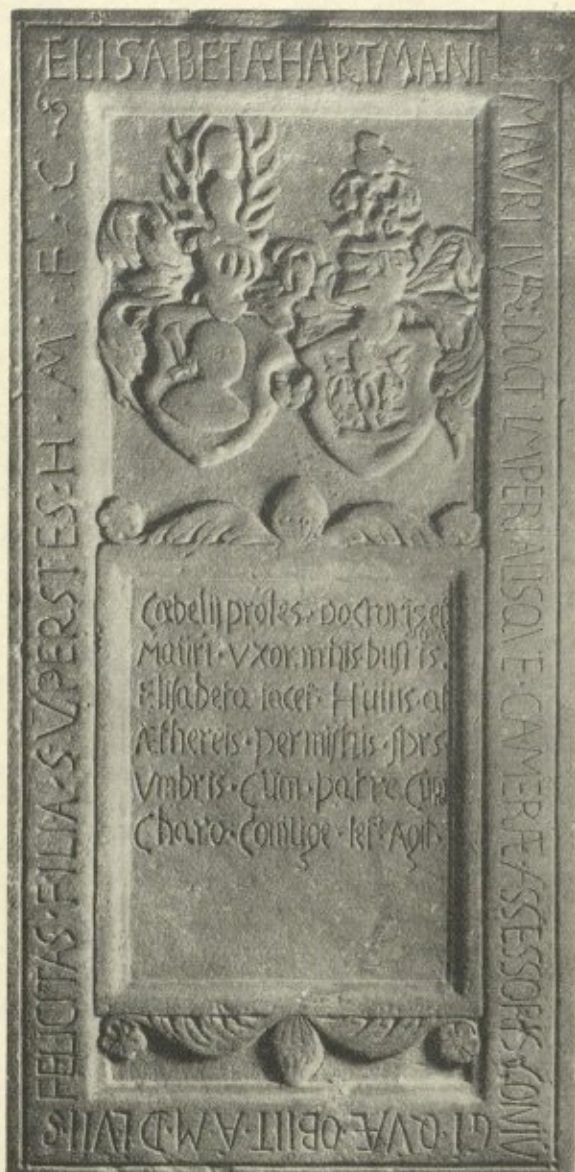 ELISABETÆ HARTMANI
MAVRI IVR: DOCT IMPERIALISQVE · CAMERÆ ASSESSORIS CONIV
GI · QVÆ OBIIT Aº M · D LVII S
FELICITAS · FILIA · SVPERSTES · H · M · F · C
Cœbelij proles · Doctoris et
Mauri · Vxor · in his bustis ·
Elisabeta iacet · Huius at
Æthereis · permistus · sp̄rs
Vmbris · Cum · patre Cum
Charo · Coniuge · let' · Agit ·